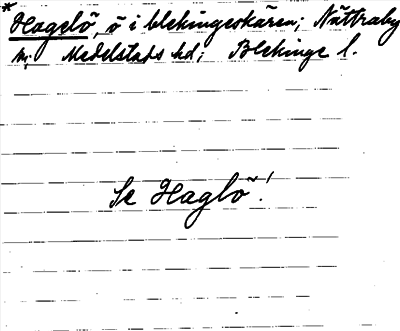 * Hagelö, ö i blekingeskären; Nättraby
sn; Medelstads hd; Blekinge l.
Se Haglö!